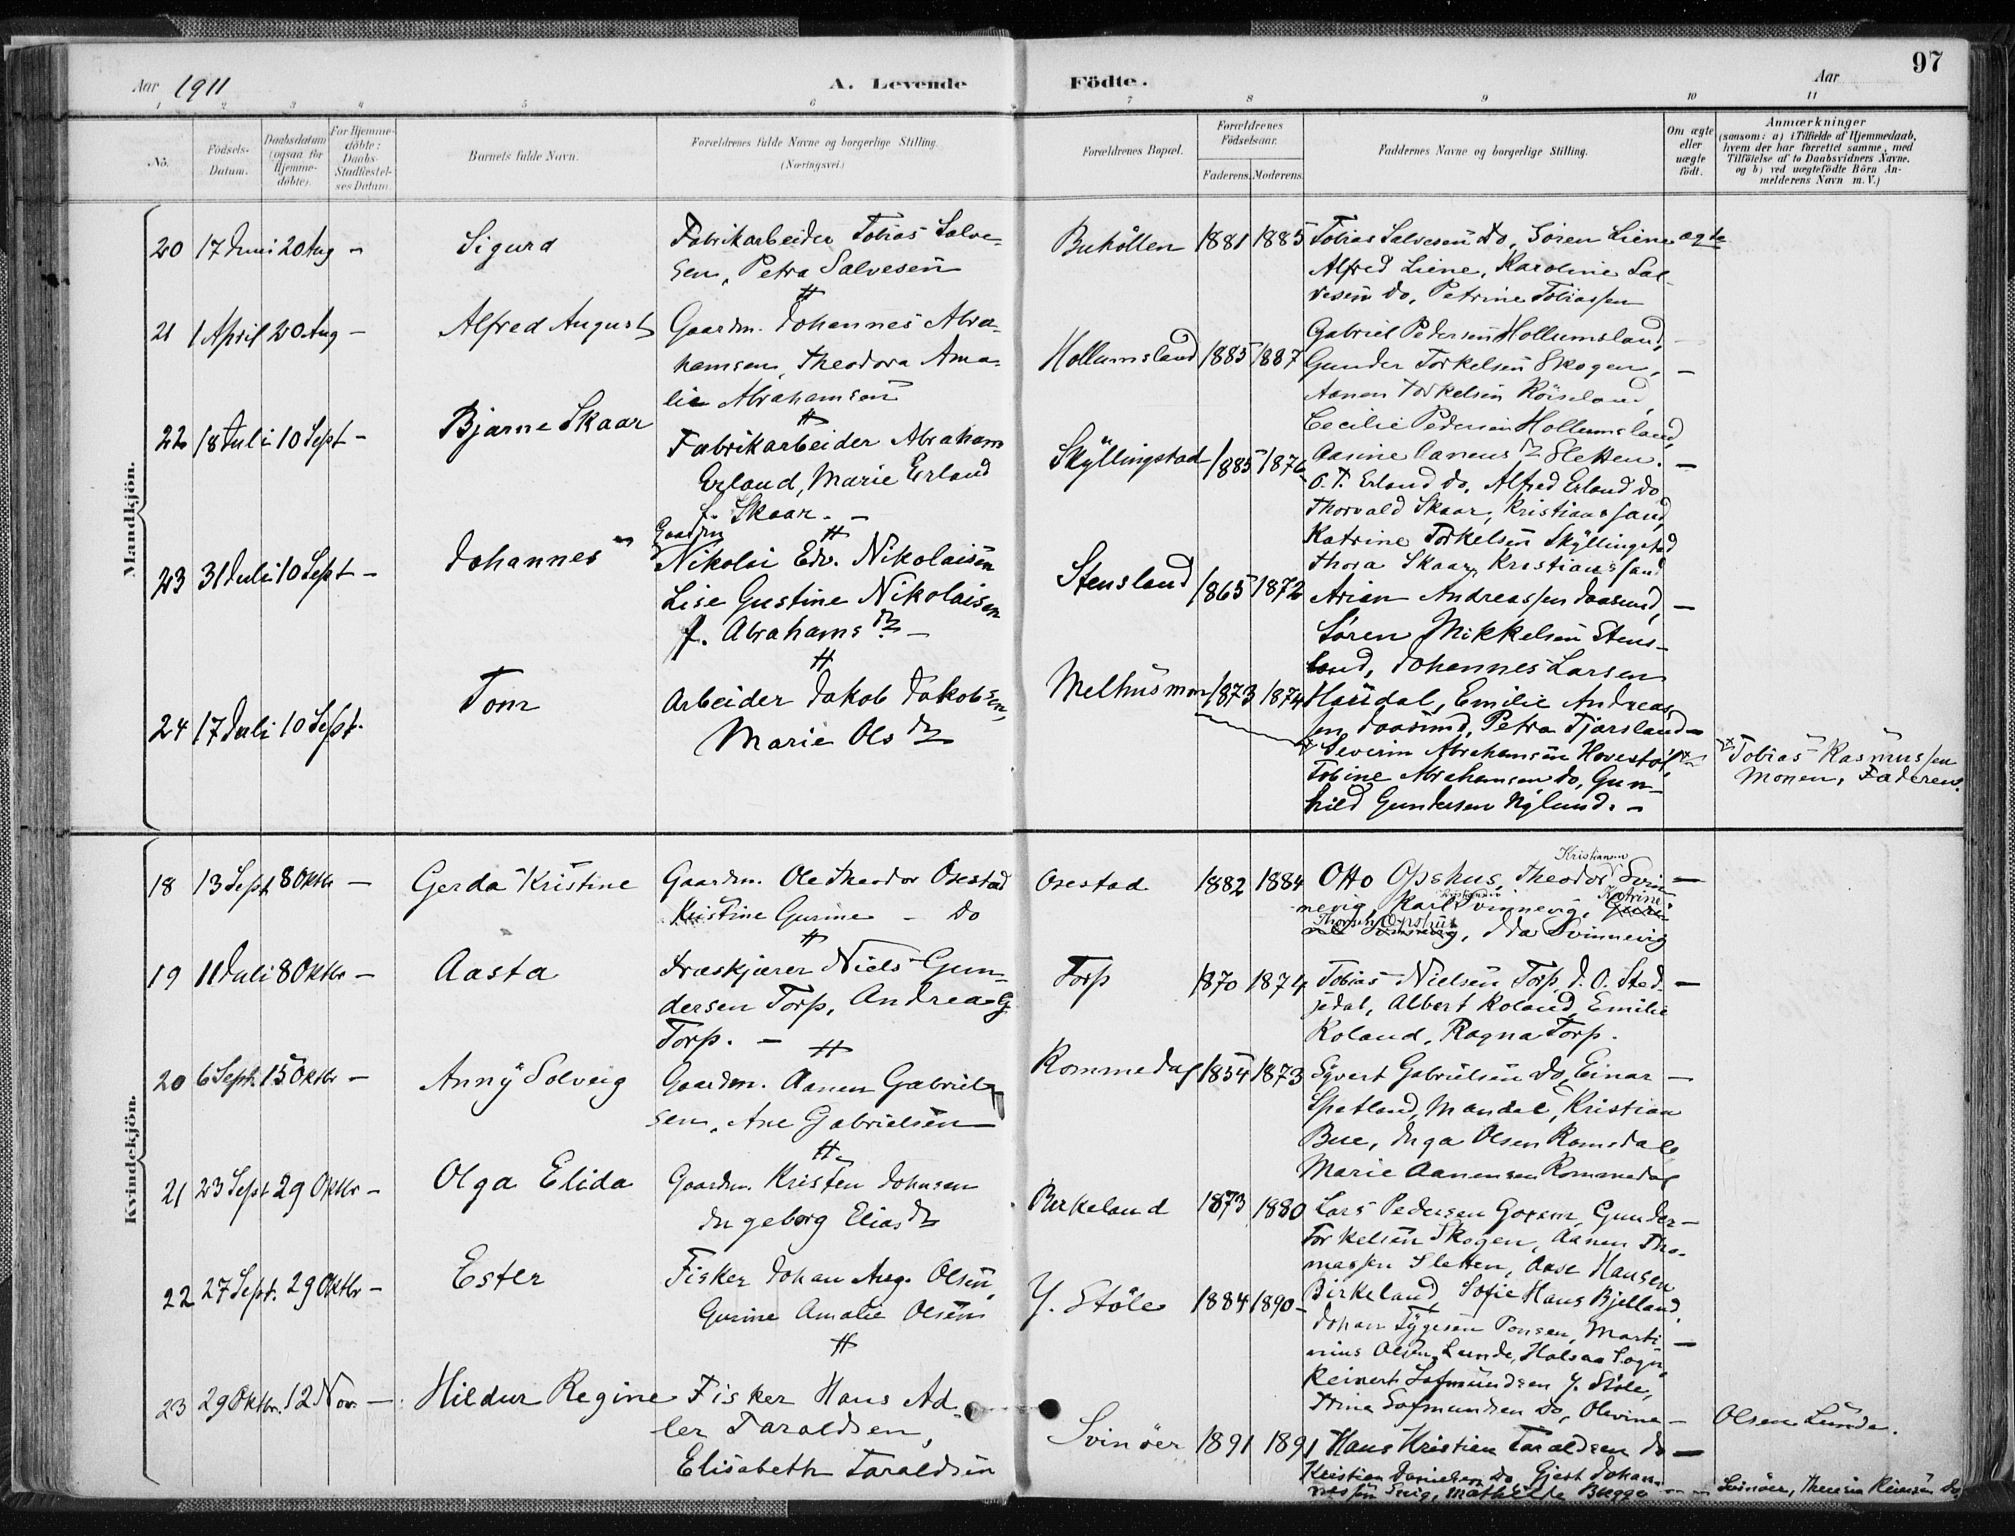 97
Aar 1911
A. Levende Födte.
Aar
1 2 3 4 5 6 7 8 9 10 11
No.
Födsels-Datum.
Daabsdatum (ogsaa for Hjemme-döbte).
For Hjemme-döbte: Daabs-Stadfæstel-ses Datum.
Barnets fulde Navn.
Forældrenes fulde Navne og borgerlige Stilling.
(Næringsvei.)
Forældrenes Bopæl.
Forældrenes Födselsaar.
Faderens. Moderens.
Faddernes Navne og borgerlige Stilling.
Om ægte eller uægte födt.
Anmærkninger
(saasom: a) i Tilfælde af Hjemmedaab,
hvem der har forrettet samme, med
Tilföielse af to Daabsvidners Navne.
og b) ved uægtefödte Börn An-
melderens Navn m. V.)
Mandkjön.
20 17 Juni 20 Aug - Sigurd
Fabrikarbeider Tobias Salve-
sen, Petra Salvesen
Buhöllen 1881 1885
Tobias Salvesen do, Sören Liene ægte
Alfred Liene, Karoline Sal-
vesen do, Petrine Tobiassen
21 1 April 20 Aug - Alfred August
Gaardm. Johannes Abra-
hamsen, Theodora Ama-
lie Abrahamsen
Hollumsland 1885 1887
Gabriel Pedersen Hollumsland,
Gunder Torkelsen Skogen, -
Aanen Torkelsen Röiseland
Cecilie Pedersen Hollumsland,
Aasine Aanens D. Sletten. -
22 18 Juli 10 Sept - Bjarne Skaar
Fabrikarbeider Abraham
Erland, Marie Erland
f. Skaar. -
Skyllingstad 1885 1876
O. T. Erland do, Alfred Erland do
Thorvald Skaar, Kristianssand,
Katrine Torkelsen Skyllingstad
Thora Skaar, Kristianssand
23 31 Juli 10 Sept - Johannes
Gaardm
Nikolai Edv. Nikolaisen
Lise Gustine Nikolaisen
f. Abrahams D. -
Stensland 1865 1872
Arian Andreassen Faasund, -
Sören Mikkelsen Stens-
land, Johannes Larsen
24 17 Juli 10 Sept. Tom
Arbeider Jakob Jakobsen,
Marie Ols D.
Melhusmon 1873 1874
Haudal, Emilie Andreas-
sen Faasund, Petra Tjorsland -
Severin Abrahamsen Hovestøl,
Tobine Abrahamsen do, Gun-
hild Gundersen Nglund. -
Tobias Rasmussen
Monen, Faderen.
Kvindekjön.
18 13 Sept 8 Oktbr - Gerda Kristine
Gaardm. Ole Theodor Osestad
Kristine Gurine - do
Osestad 1882 1884
Kristiansen
Otto Opshus, Theodor Svin- -
nevig, Karl Svinnevig, Katrine
Opshus, Ida Svinnevig
19 11 Juli 8 Oktbr - Aasta
Træskjærer Niels Gun-
dersen Torp, Andrea G
Torp. -
Torp 1870 1874
Tobias Nielsen Torp, J. O. Sted- -
jedal, Albert Roland, Emilie
Roland, Ragna Torp.
20 6 Sept. 15 Oktbr - Anny Solveig
Gaardm. Aanen Gabriel-
sen, Ane Gabrielsen
Rommedal 1854 1873
Syvert Gabrielsen do, Einar -
Spetland, Mandal, Kristian
Bue, Inga Olsen Romsdal
Marie Aanensen Rommedal
21 23 Sept 29 Oktbr - Olga Elida
Gaardm. Kristen Johnsen
Ingeborg Elias D.
Birkeland 1873 1880
Lars Pedersen Goksem, Gunder -
Torkelsen Skogen, Aanen Tho-
massen Sletten, Aase Hansen
Birkeland Sofie Hans Bjelland.
22 27 Sept. 29 Oktbr - Ester
Fisker Johan Aug. Olsen,
Gurine Amalie Olsen
Y. Stöle 1884 1890 -
Johan Tygesen Ponsen, Marti- -
nius Olsen Lunde, Halsaa Sogn,
Reinert Salmundsen Y. Stöle,
Trina Salmundsen do, Olevine - Olsen Lunde.
23 29 Oktbr. 12 Nov. - Hildur Regine
Fisker Hans Ad-
ler Taraldsen,
Elisabeth Taraldsen
Svinöer 1891 1891
Hans Kristian Taraldsen do -
Kristian Danielsen do, Gjert Johan-
nessen Snig, Mathilde Bugge - - Svinöer, Theresia Reiersen do.